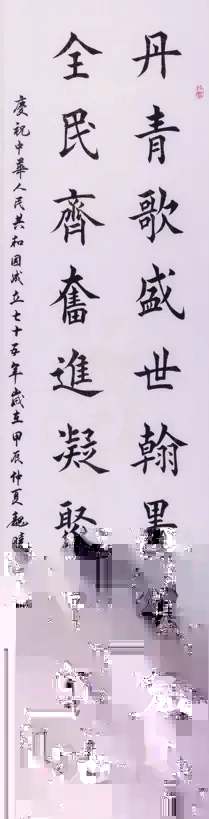 丹青歌盛世翰墨
全民齊奮進凝聚
慶祝中華人民共和国成立七十五年歲在甲辰仲夏魏